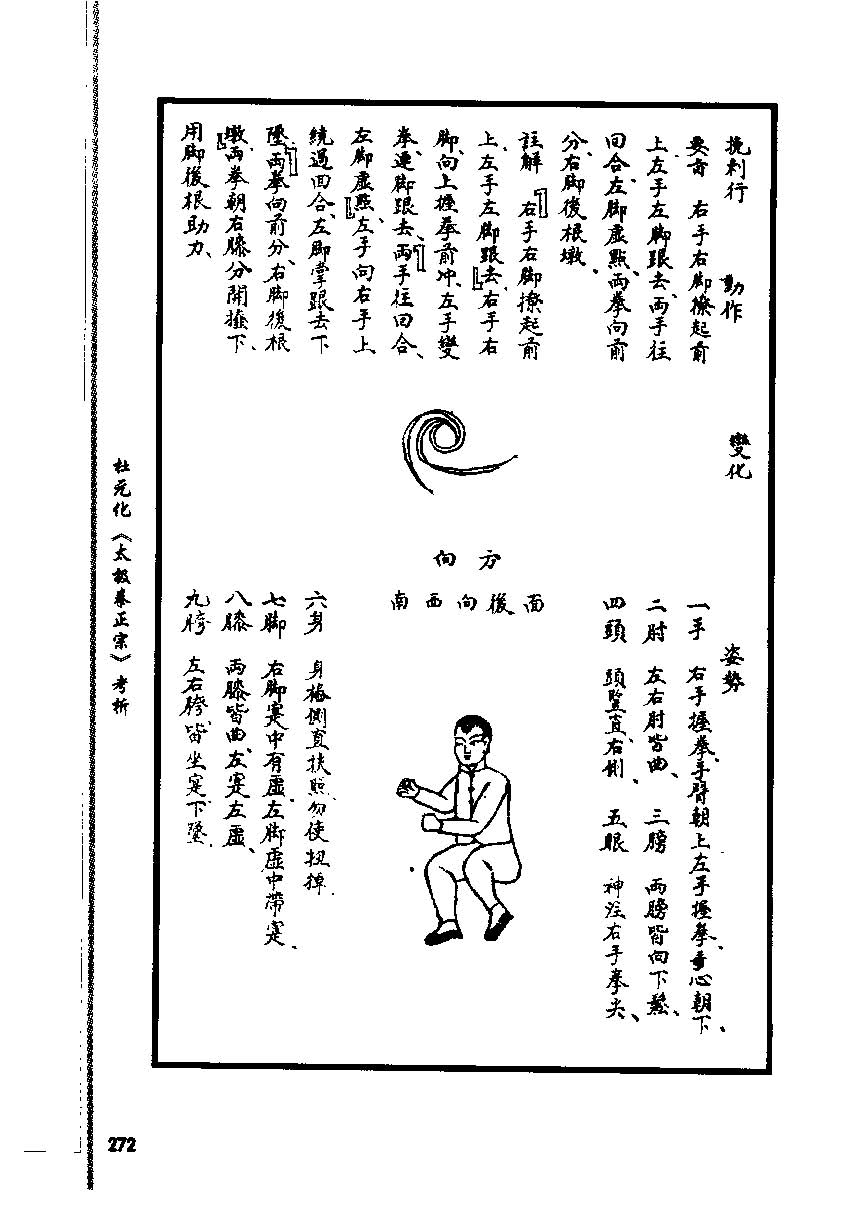 挽刺行
動作
要言 右手右脚撩起前
上左手左脚跟去、両手往
回合左脚虛點、両拳向前
分、右脚後根墩、
註解 右手右脚撩起前
上、左手左脚跟去、右手右
脚、向上握拳前冲、左手變
拳、連脚跟去、両手往回合、
左脚虛點、左手向右手上
繞過回合、左脚掌跟去下
墜、両拳向前分、右脚後根
墩、両拳朝右膝分開捶下、
用脚後根助力、
變化
方向
面後向西南
姿勢
一手 右手握拳、手臂朝上左手握拳、手心朝下、
二肘 左右肘皆曲、 三膀 両膀皆向下鬆、
四頭 頭豎直、右側、 五眼 神注右手拳尖、
六身 身樁側直扶照、勿使扭掉、
七脚 右脚寔中有虛、左脚虛中帶寔、
八膝 両膝皆曲、左寔左虛、
九胯 左右胯、皆坐寔下墜、
杜元化《太极拳正宗》考析
272